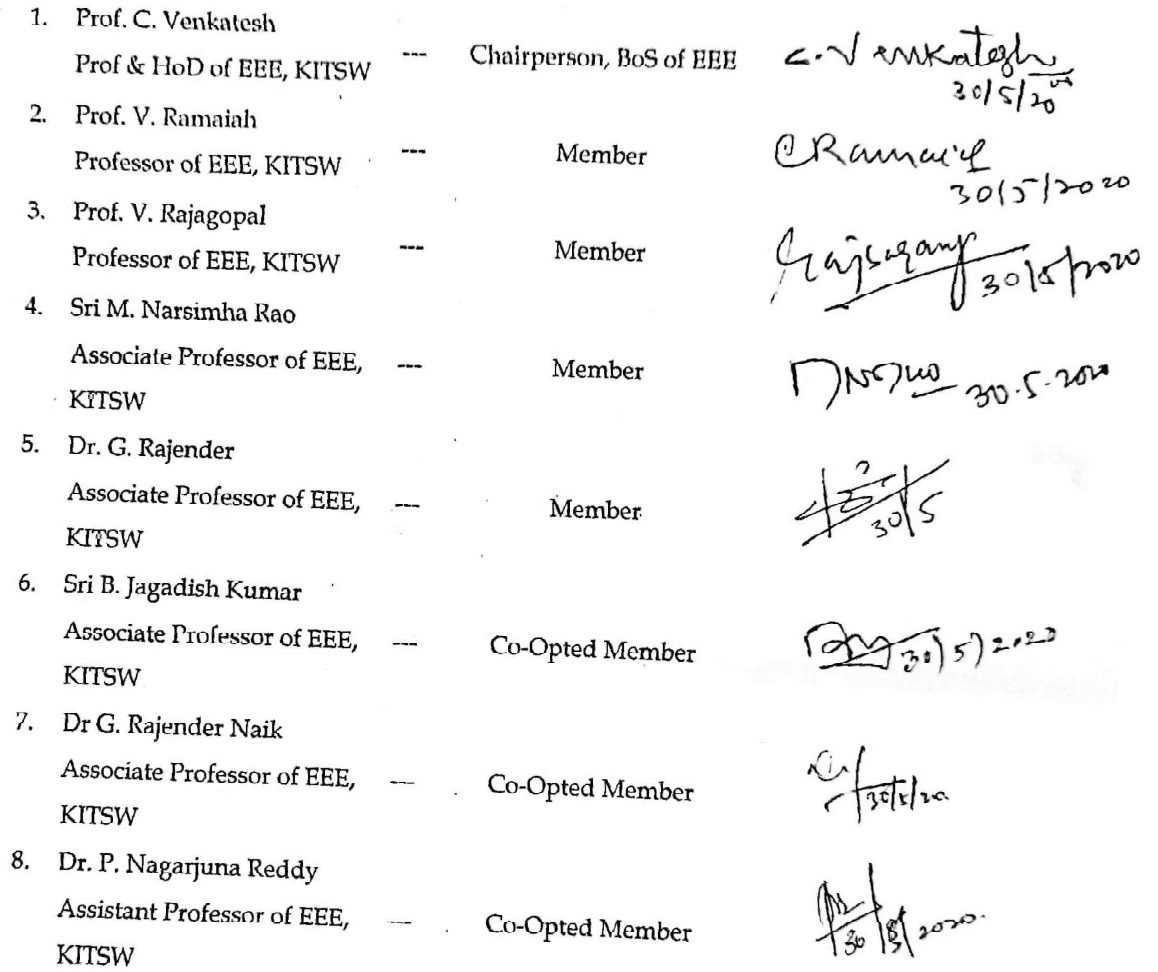 1. Prof. C. Venkatesh
Prof & HoD of EEE, KITSW --- Chairperson, BoS of EEE C. Venkatesh
30/5/20
2. Prof. V. Ramaiah
Professor of EEE, KITSW --- Member Ramaiah
30/5/2020
3. Prof. V. Rajagopal
Professor of EEE, KITSW --- Member
30/5/2020
4. Sri M. Narsimha Rao
Associate Professor of EEE, --- Member
KITSW
30.5.2020
5. Dr. G. Rajender
Associate Professor of EEE, --- Member
KITSW
30/5
6. Sri B. Jagadish Kumar
Associate Professor of EEE, --- Co-Opted Member
KITSW
30/5/2020
7. Dr G. Rajender Naik
Associate Professor of EEE, --- Co-Opted Member
KITSW
30/5/20
8. Dr. P. Nagarjuna Reddy
Assistant Professor of EEE, --- Co-Opted Member
KITSW